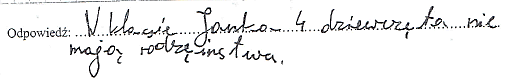 Odpowiedź: W klasie Janka 4 dziewczęta nie
mają rodzeństwa.